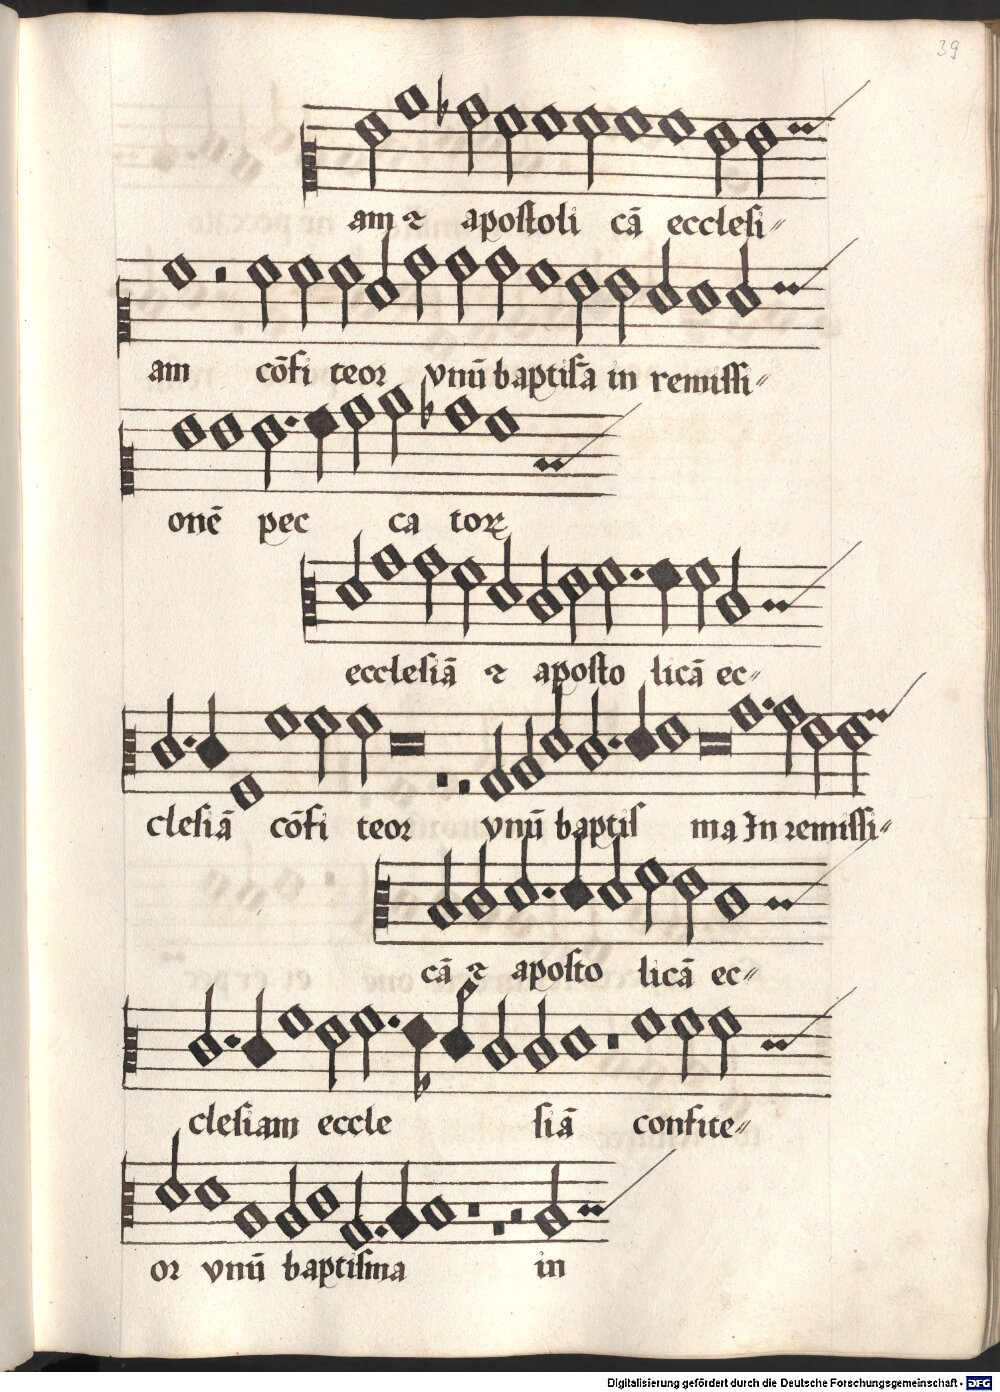 39
am ⁊ apostoli cā ecclesi〃
am cōfi teor vnū baptisa in remissi〃
onē pec ca torꝝ
ecclesiā ⁊ aposto licā ec〃
clesiā cōfi teor vnū baptis ma In remissi〃
cā ⁊ aposto licā ec〃
clesiam eccle siā confite〃
or vnū baptisma in
Digitalisierung gefördert durch die Deutsche Forschungsgemeinschaft - DFG